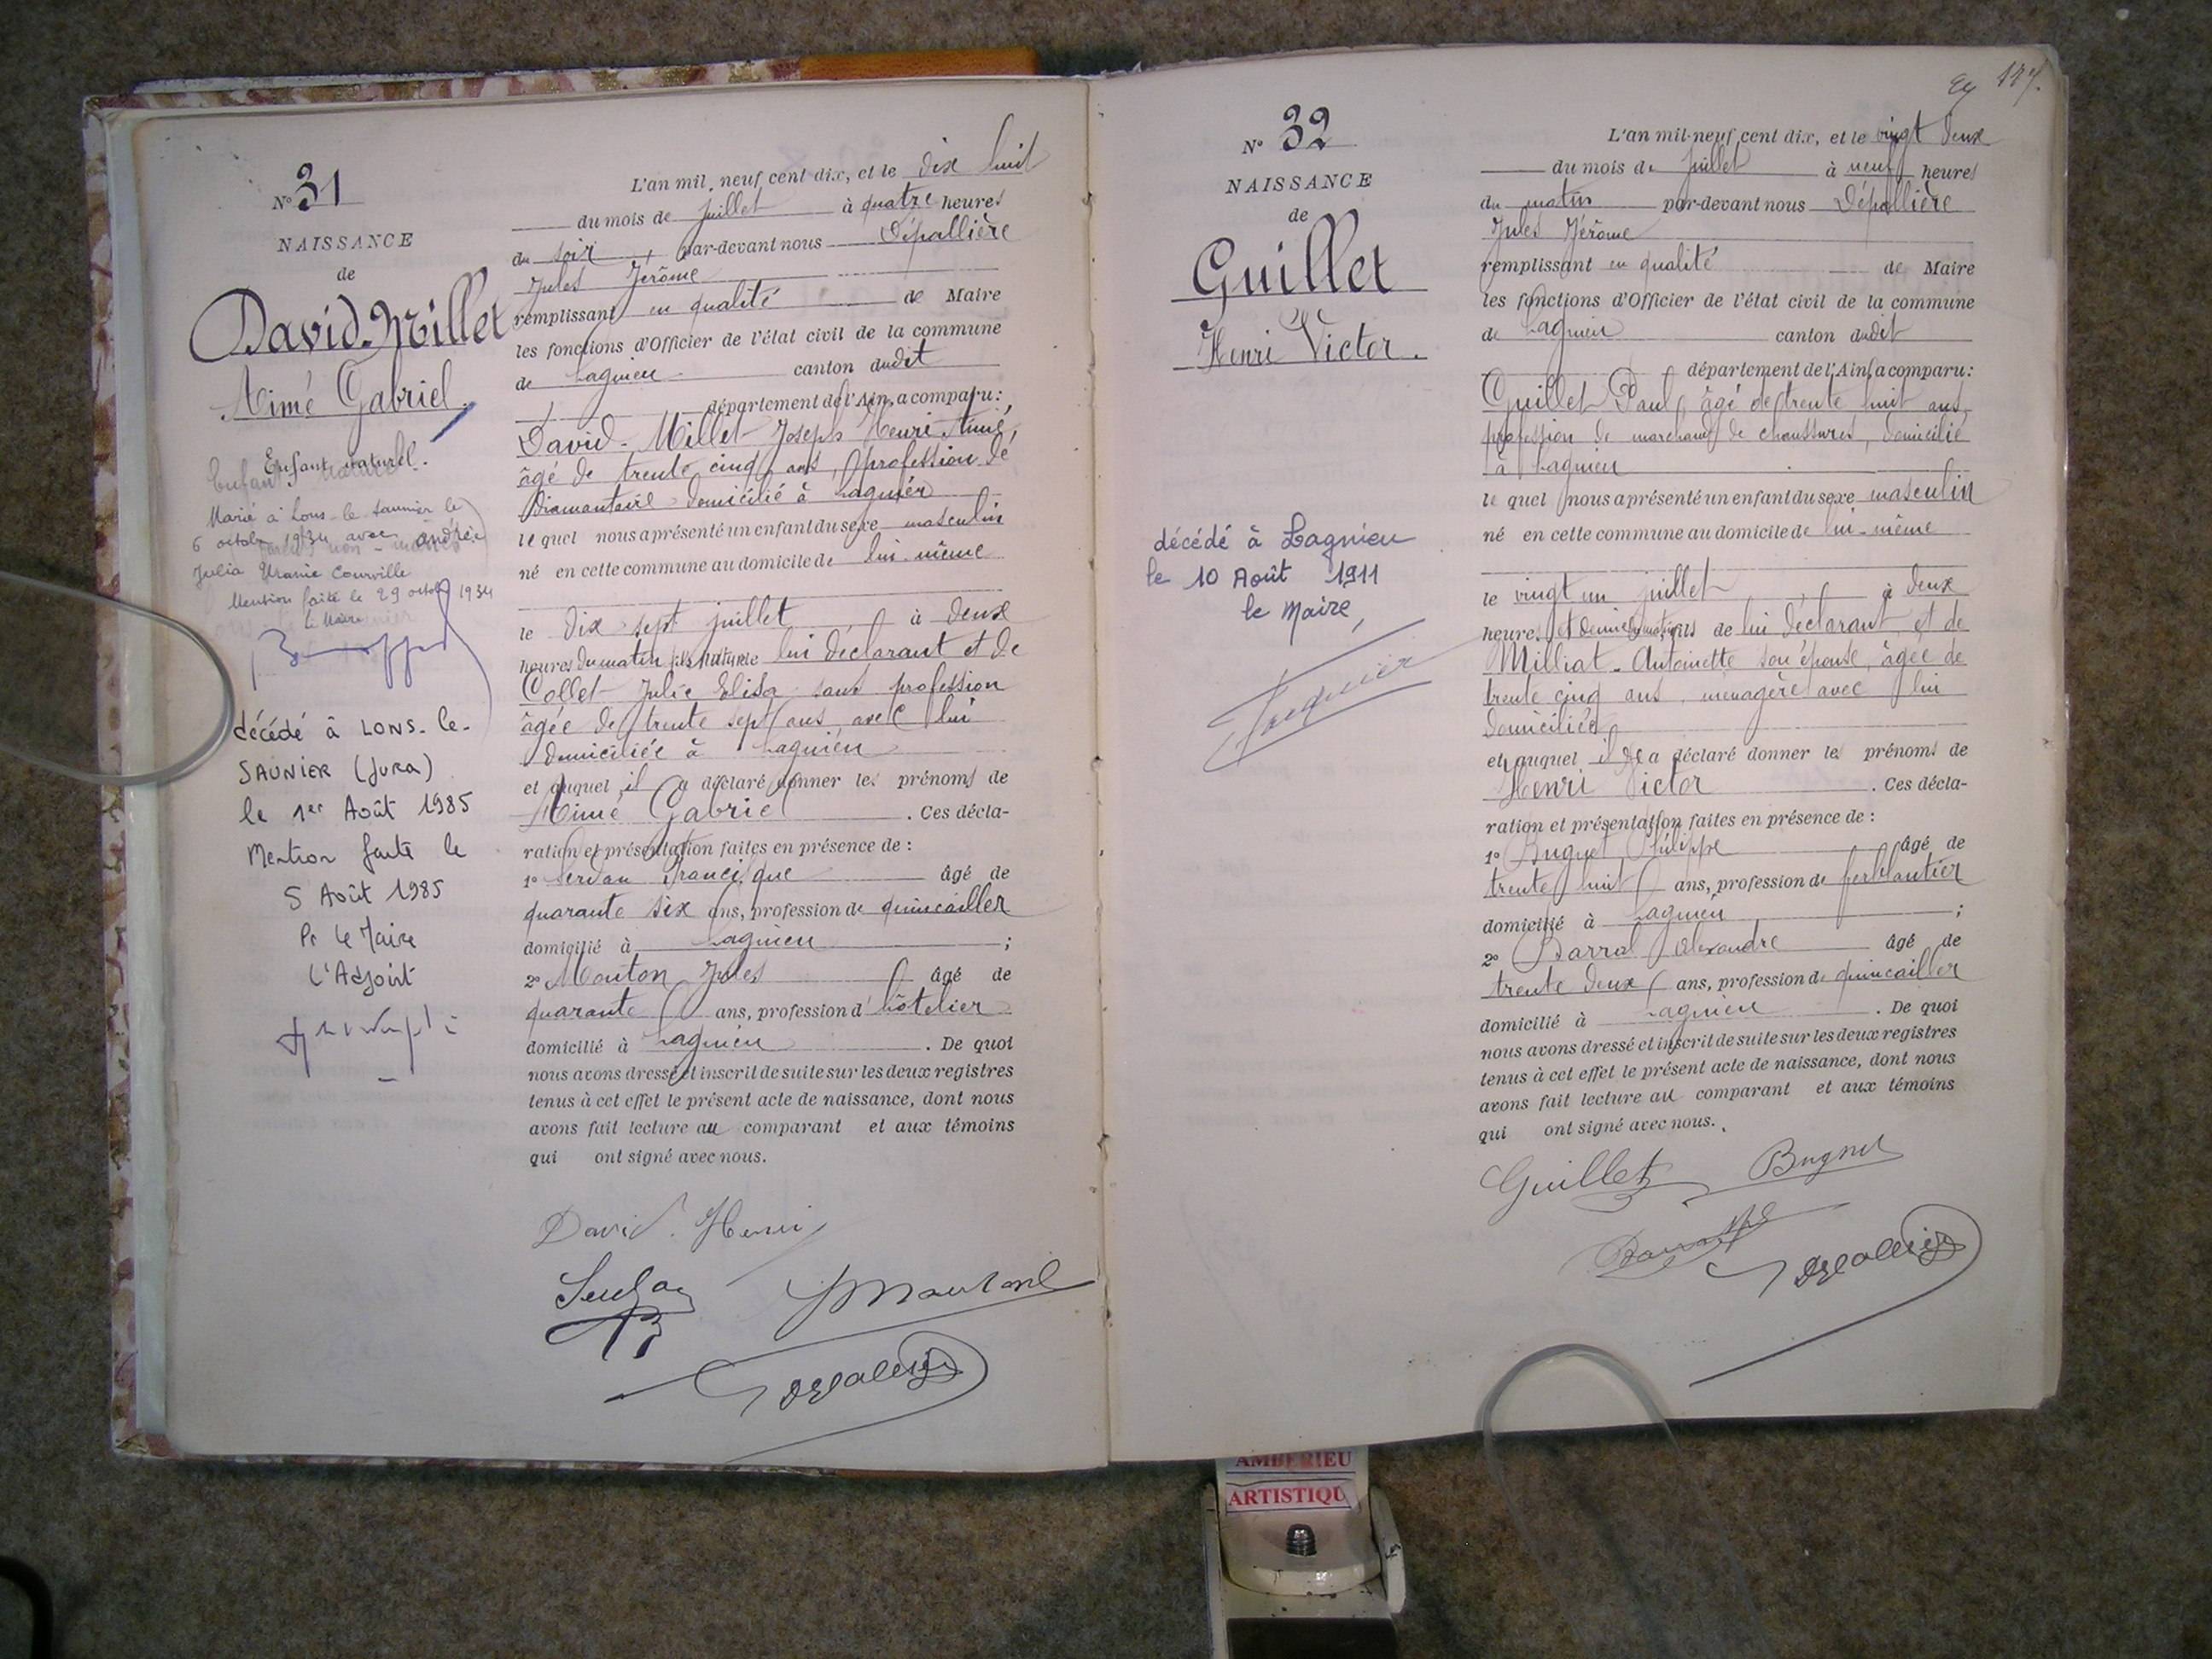 N° 31
NAISSANCE
de
David-Millet
Aimé Gabriel.
Enfant naturel.
Marié à Lons-le-Saunier le
6 octobre 1934 avec Andrée
Julia Uranie Courville
Mention faite le 29 octobre 1934
le Maire
décédé à LONS-le-
SAUNIER (Jura)
le 1er Août 1985
Mention faite le
5 Août 1985
Pr le Maire
L'Adjoint
L'an mil neuf cent dix, et le dix huit
du mois de juillet à quatre heures
du soir, par-devant nous Dépallière
Jules Jérôme
remplissant en qualité de Maire
les fonctions d'Officier de l'état civil de la commune
de Lagnieu canton dudit
département de l'Ain, a comparu:
David-Millet Joseph Henri Aimé,
âgé de trente cinq ans, profession de
diamantaire domicilié à Lagnieu
le quel nous a présenté un enfant du sexe masculin
né en cette commune au domicile de lui-même
le dix sept juillet, à deux
heures du matin, fils naturel lui déclarant et de
Collet Julie Elisa sans profession
âgée de trente sept ans, avec lui
domiciliée à Lagnieu
et auquel il a déclaré donner les prénoms de
Aimé Gabriel. Ces décla-
ration et présentation faites en présence de :
1° Servan Francisque âgé de
quarante six ans, profession de quincailler
domicilié à Lagnieu ;
2° Mouton Jules âgé de
quarante ans, profession d'hôtelier
domicilié à Lagnieu. De quoi
nous avons dressé et inscrit de suite sur les deux registres
tenus à cet effet le présent acte de naissance, dont nous
avons fait lecture au comparant et aux témoins
qui ont signé avec nous.
David Henri
Servan
J Mouton
Dépallière
147.
N° 32
NAISSANCE
de
Guillet
Henri Victor.
décédé à Lagnieu
le 10 Août 1911
le Maire,
L'an mil neuf cent dix, et le vingt deux
du mois de juillet à neuf heures
du matin par-devant nous Dépallière
Jules Jérôme
remplissant en qualité de Maire
les fonctions d'Officier de l'état civil de la commune
de Lagnieu canton dudit
département de l'Ain, a comparu:
Guillet Paul, âgé de trente huit ans,
profession de marchand de chaussures, domicilié
à Lagnieu
le quel nous a présenté un enfant du sexe masculin
né en cette commune au domicile de lui-même
le vingt un juillet, à deux
heures et demie du matin, fils de lui déclarant et de
Milliat Antoinette son épouse, âgée de
trente cinq ans, ménagère avec lui
domiciliée
et auquel il a déclaré donner les prénoms de
Henri Victor. Ces décla-
ration et présentation faites en présence de :
1° Bugnet Philippe âgé de
trente huit ans, profession de ferblantier
domicilié à Lagnieu ;
2° Barral Alexandre âgé de
trente deux ans, profession de quincailler
domicilié à Lagnieu. De quoi
nous avons dressé et inscrit de suite sur les deux registres
tenus à cet effet le présent acte de naissance, dont nous
avons fait lecture au comparant et aux témoins
qui ont signé avec nous.
Guillet
Bugnet
Barral
Dépallière
AMBERIEU
ARTISTIQU